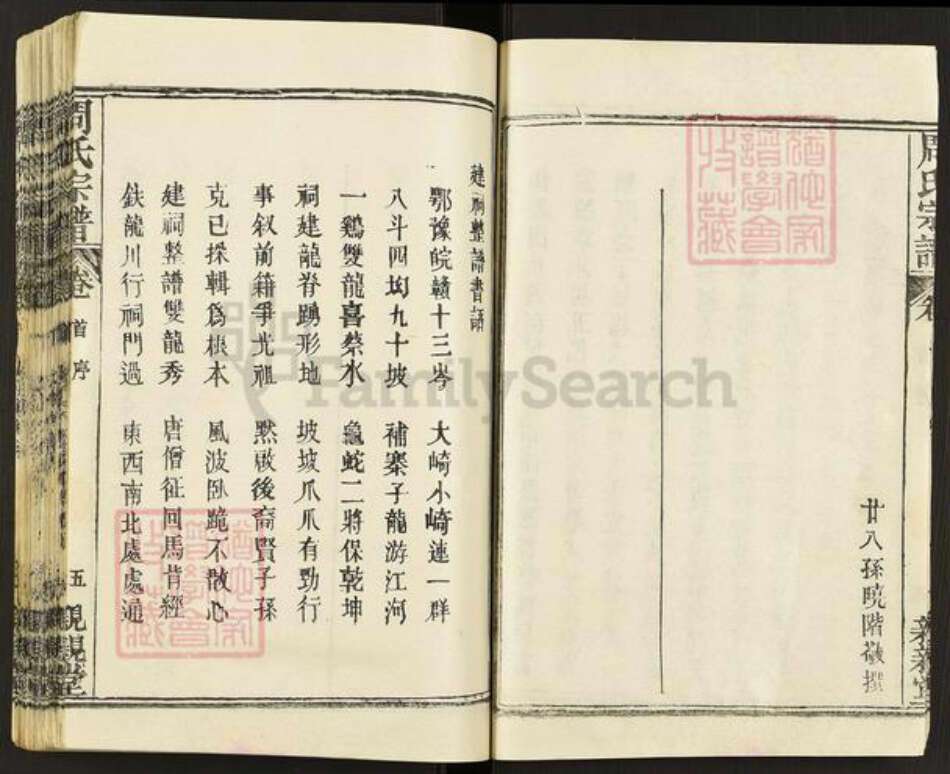 周氏宗譜
廿八孫曉階敬撰
猶他家譜學會收藏
建祠整譜書語
鄂豫皖贛十三岑 大崎小崎連一群
八斗四㘭九十坡 補寨子龍游江河
一鷄雙龍喜蔡水 龜蛇二將保乾坤
祠建龍脊踴形地 坡坡爪爪有勁行
事叙前籍爭光祖 黙啟後裔賢子孫
克已採輯爲根本 風波卧跪不散心
建祠整譜雙龍秀 唐僧征回馬背經
鉄龍川行祠門過 東西南北處處通
周氏宗譜
卷首
序
五
親親堂
猶他家譜學會收藏
FamilySearch